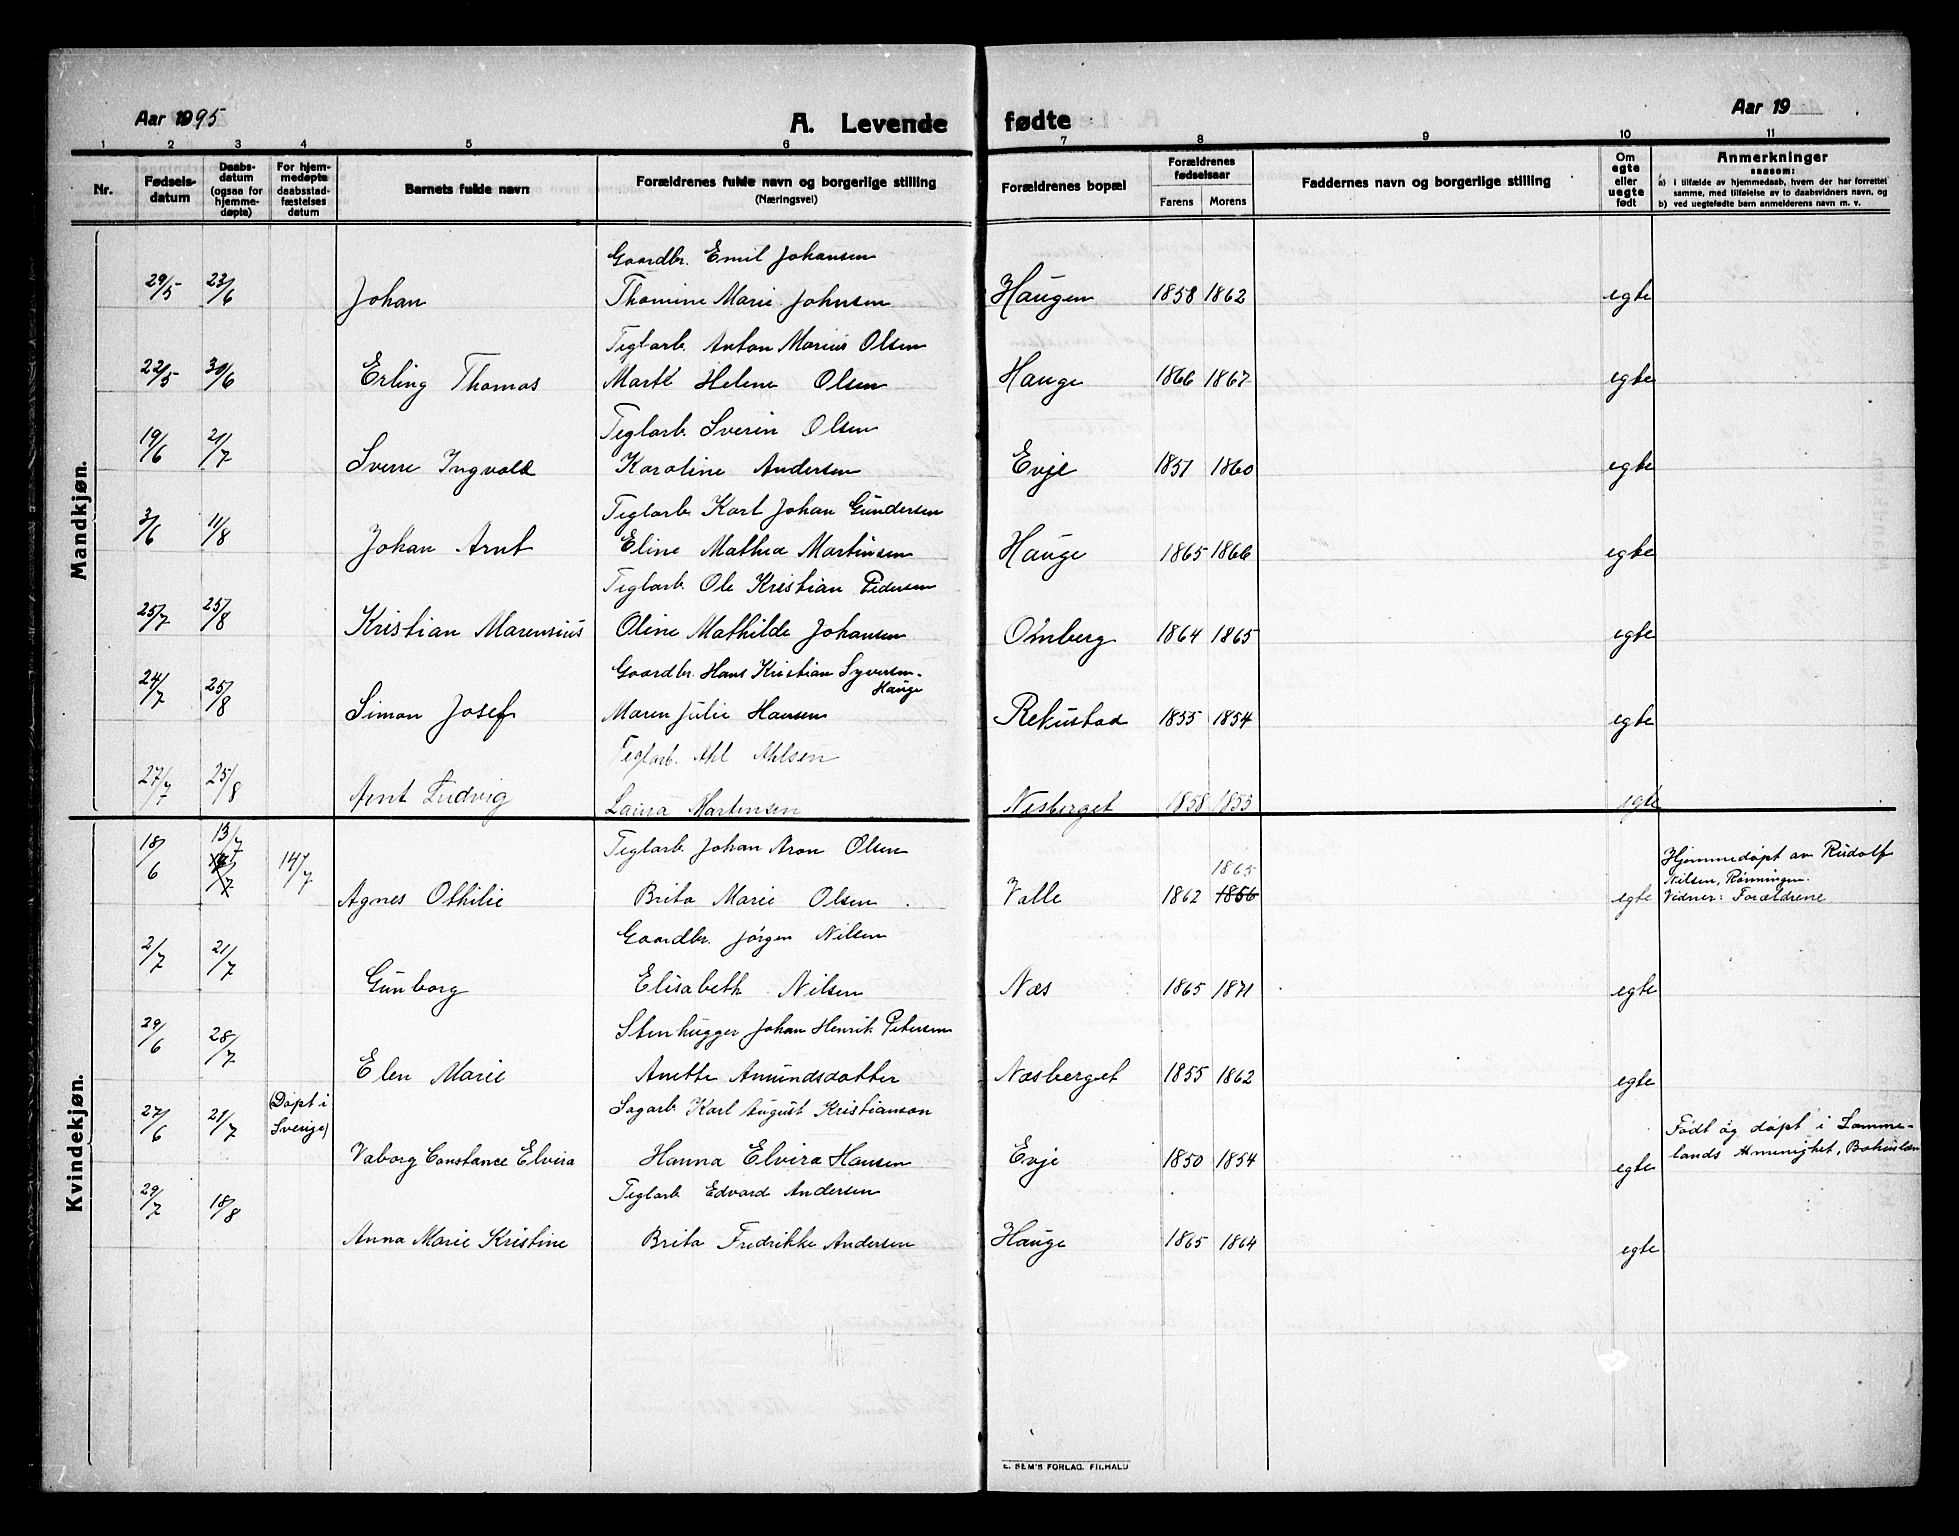 Aar 1895
A. Levende
fødte
Aar 19
1 2 3 4 5 6 7 8 9 10 11
Nr.
Fødsels-
datum
Daabs-
datum
(ogsaa for
hjemme-
døpte)
For hjem-
medøpte
daabsstad-
fæstelses
datum
Barnets fulde navn
Forældrenes fulde navn og borgerlige stilling
(Næringsvei)
Forældrenes bopæl
Forældrenes
fødselsaar
Farens Morens
Faddernes navn og borgerlige stilling
Om
egte
eller
uegte
født
Anmerkninger
saasom:
a) I tilfælde av hjemmedaab, hvem der har forrettet
samme, med tilføielse av to daabsvidners navn, og
b) ved uegtefødte barn anmelderens navn m. v.
Mandkjøn.
Gaardbr. Emil Johansen
29/5 23/6 Johan Thomine Marie Johnsen Haugen 1858 1862 egte
Teglarb. Anton Marius Olsen
22/5 30/6 Erling Thomas Marte Helene Olsen Hauge 1866 1867 egte
Teglarb. Sverin Olsen
19/6 21/7 Sverre Ingvald Karoline Andersen Evje 1857 1860 egte
Teglarb. Karl Johan Gundersen
3/6 11/8 Johan Arnt Eline Mathea Martinsen Hauge 1865 1866 egte
Teglarb. Ole Kristian Pedersen
25/7 25/8 Kristian Marensius Oline Mathilde Johansen Omberg 1864 1865 egte
Gaardbr. Hans Kristian Syversen-
Hauge
24/7 25/8 Simon Josef Maren Julie Hansen Rekustad 1855 1854 egte
Teglarb. Ahl Ahlsen
27/7 25/8 Arnt Ludvig Laura Martensen Nesberget 1858 1853 egte
Kvindekjøn.
Teglarb. Johan Aron Olsen
18/6 13/7 14/7 Agnes Othilie Brita Marie Olsen Valle 1862 1856 1865 egte
Hjemmedøpt av Rudolf
Nilsen, Rønningen.
Vidner: Forældrene
Gaardbr. Jørgen Nilsen
2/7 21/7 Gunborg Elisabeth Nilsen Næs 1865 1871 egte
Stenhugger Johan Henrik Petersen
29/6 28/7 Elen Marie Anette Amundsdatter Næsberget 1855 1862 egte
(Døpt i
Sverige)
Sagarb. Karl August Kristianson
27/6 21/7 Vaborg Constance Elvira Hanna Elvira Hansen Evje 1850 1854 egte
Født og døpt i Lomme-
lands menighet, Bohuslän
Teglarb. Edvard Andersen
29/7 18/8 Anna Marie Kristine Brita Fredrikke Andersen Hauge 1865 1864 egte
E. SEM'S FORLAG, F.HALD